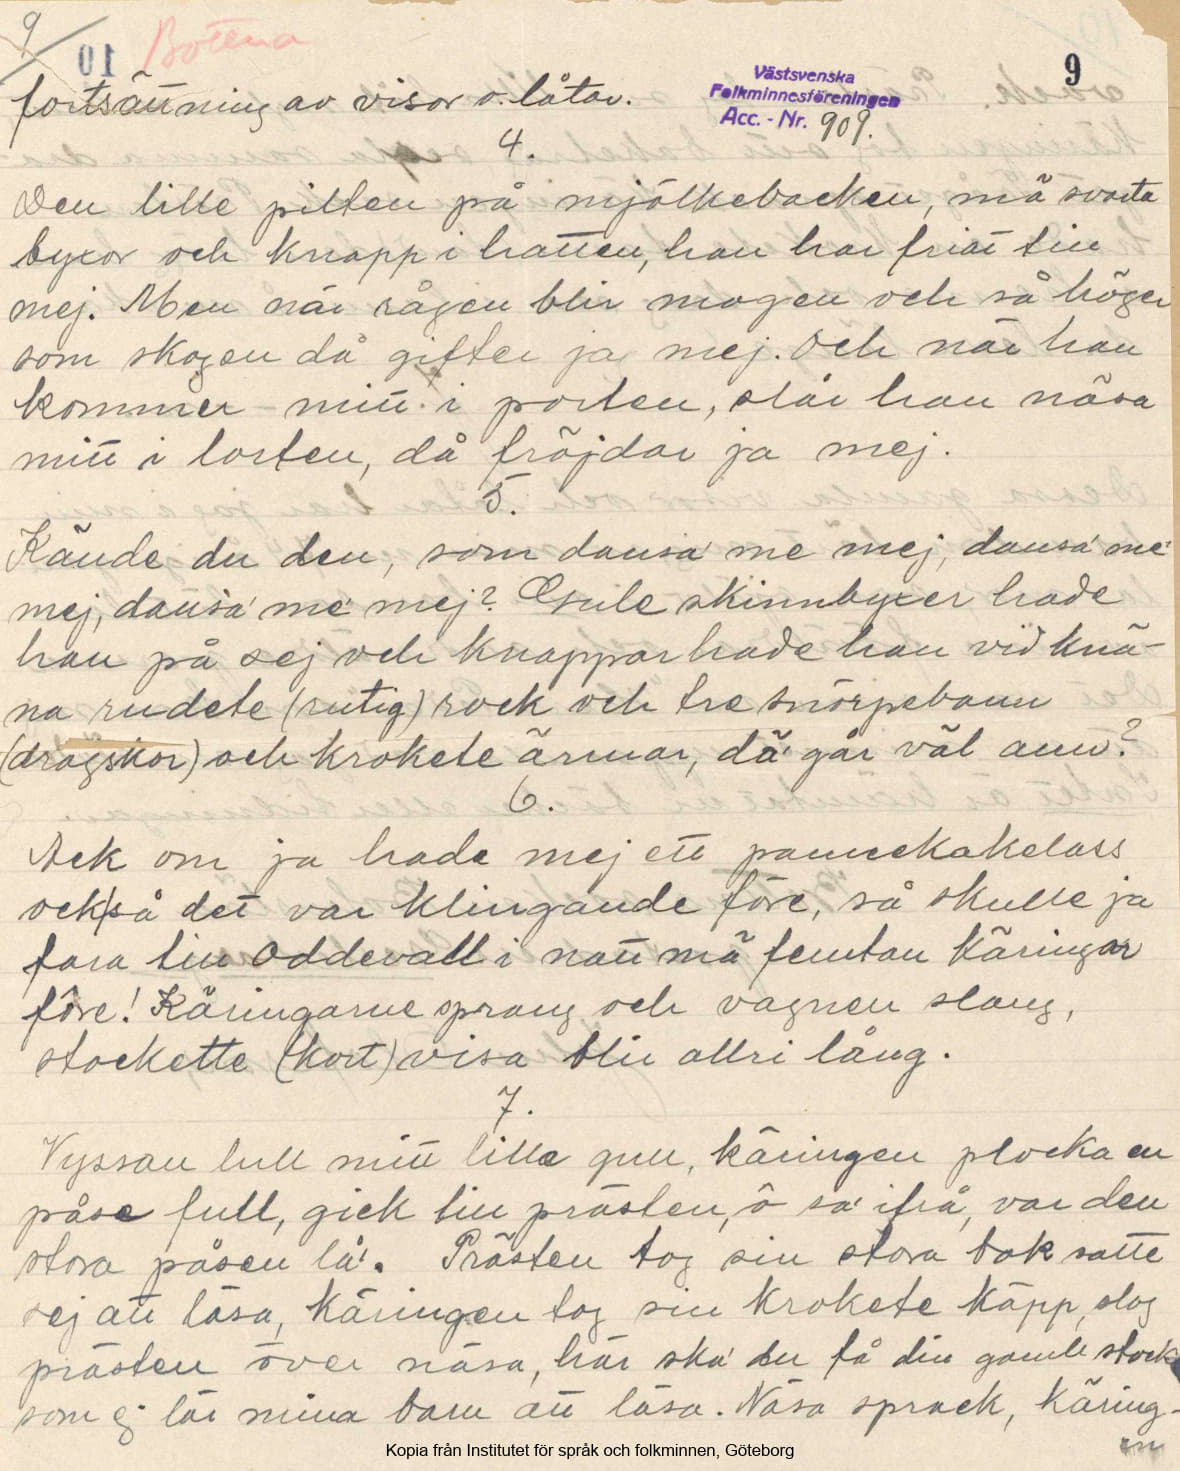 9
Bottna
Västsvenska
Folkminnesföreningen
Acc. - Nr. 909.
9
fortsättning av visor o. låtar.
4.
Den lille pilten på mjölkebacken, mä svarta
byxor och knapp i hatten, han har friat till
mej. Men när rågen blir mogen och så höger
som skogen då gifter ja mej. Och när han
kommer mitt i porten, slår han näsa
mitt i lorten, då fröjdar ja mej.
5.
Kände du den, som dansa' me mej, dansa' me'
mej, dansa' me' mej? Gule skinnbyxer hade
han på sej och knappar hade han vid knä-
na rudete (rutig) rock och tre snörpebann
(dragskor) och krokete ärmar, dä' går väl ann?
6.
Ack om ja hade mej ett pannekakelass
också det var klingande före, så skulle ja
fara till Oddevall i natt mä femtan käringar
före! Käringarne sprang och vagnen slang,
stockette (kort) visa blir allri lång.
7.
Vyssan lull mitt lilla gull, käringen plocka en
påse full, gick till prästen, ô sa' ifrå, var den
stora påsen lå'. Prästen tog sin stora bok satte
sej att läsa, käringen tog sin krokete käpp, slog
prästen över näsa, här ska' du få din gamle stock
som ej lär mina barn att läsa. Näsa sprack, käring-
en
Kopia från Institutet för språk och folkminnen, Göteborg